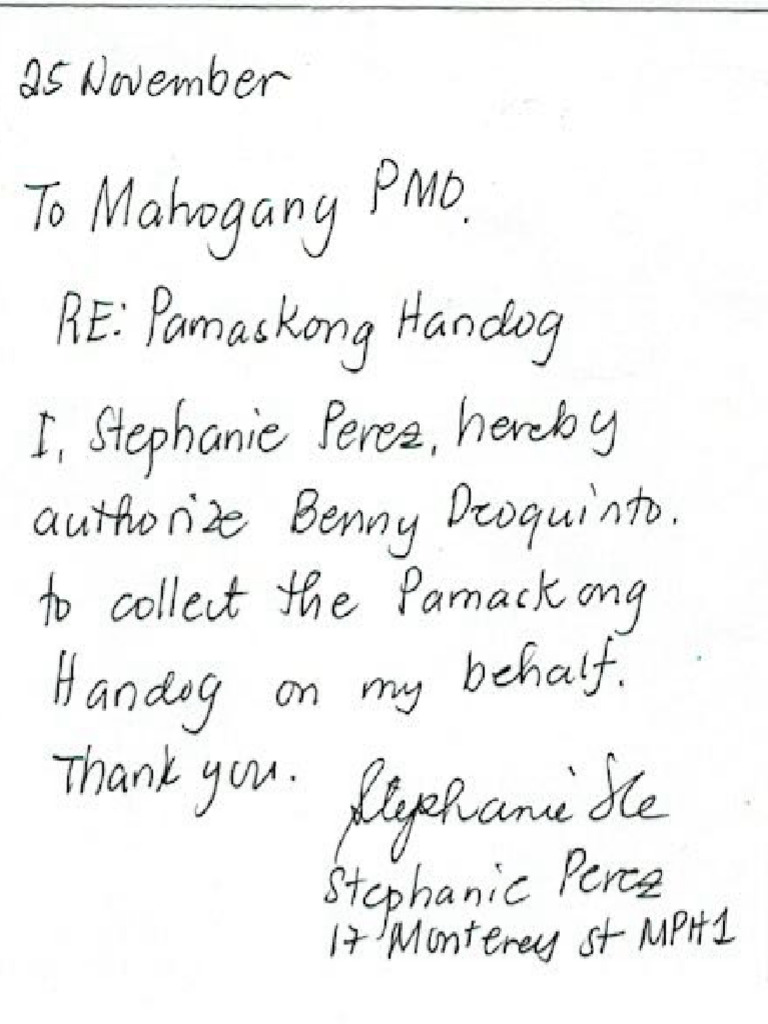 25 November
To Mahogany PMO.
RE: Pamaskong Handog
I, Stephanie Perez, hereby
authorize Benny Deoquinto.
to collect the Pamackong
Handog on my behalf.
Thank you.
Stephanie
Stephanie Perez
17 Monterey st MPH1